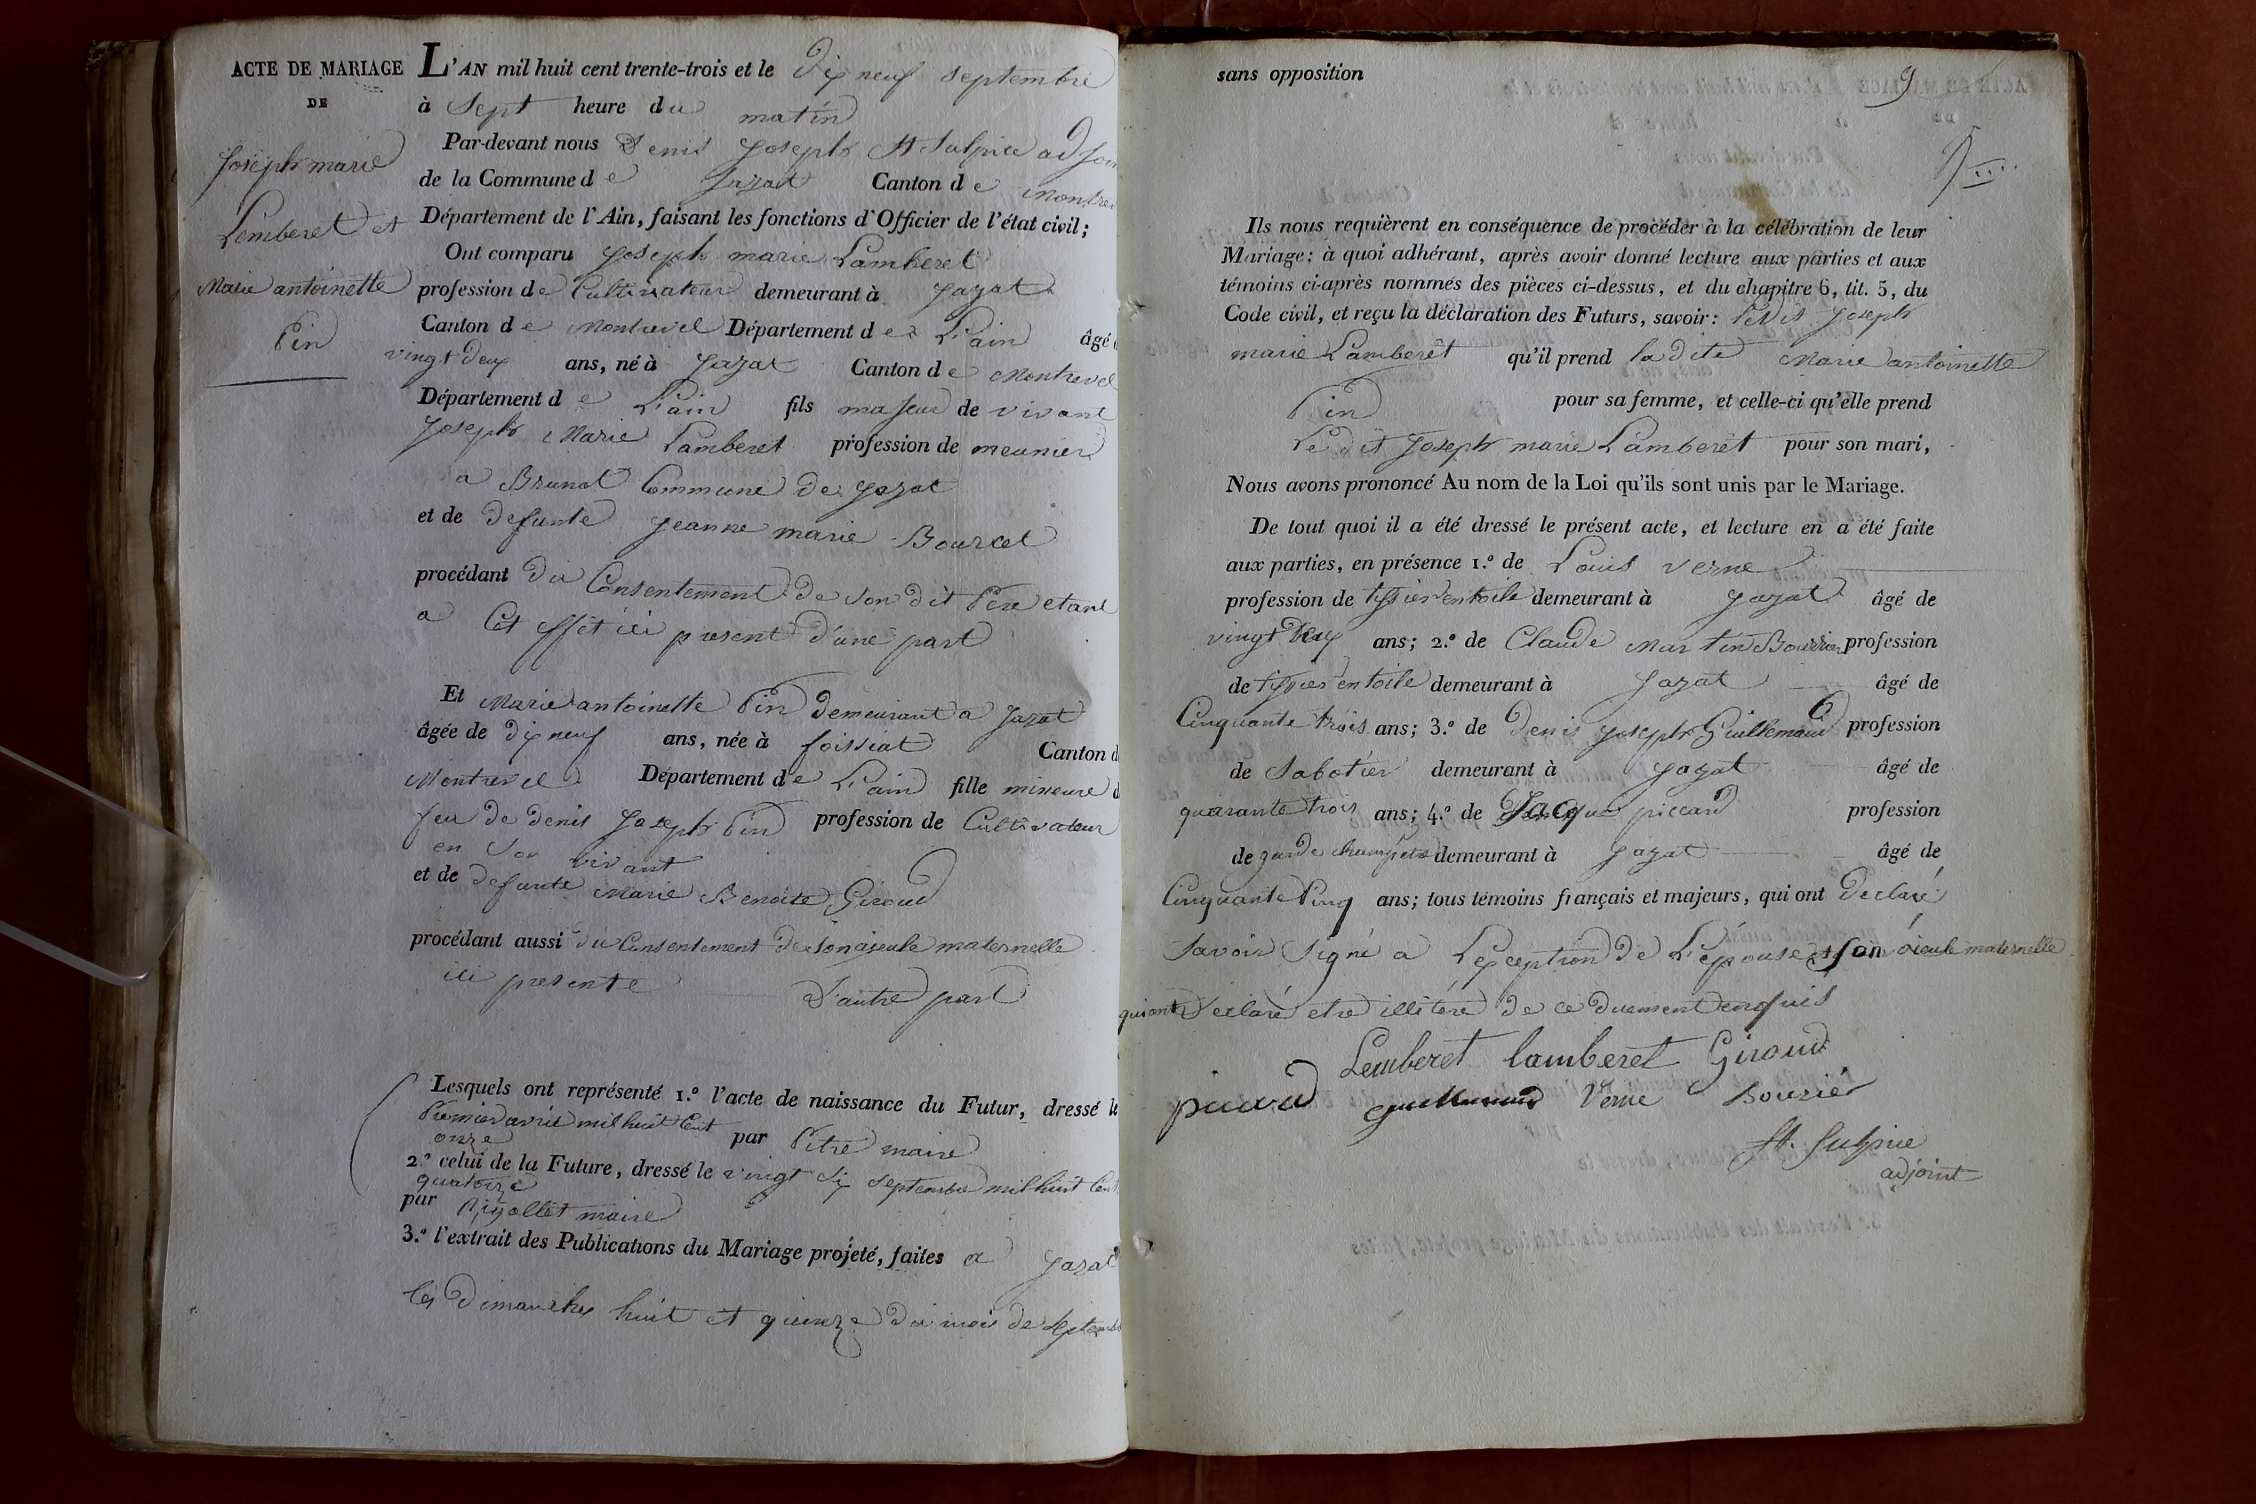 ACTE DE MARIAGE
DE
Joseph marie
Lemberet et
Marie antoinette
Pin
L'AN mil huit cent trente-trois et le dix neuf septembre
à Sept heure du matin
Par-devant nous Denis Joseph St Sulpice adjoin
de la Commune de Jayat Canton de Montrev
Département de l'Ain, faisant les fonctions d'Officier de l'état civil;
Ont comparu Joseph marie Lamberet
profession de Cultivateur demeurant à Jayat
Canton de Montrevel Département de L'ain âgé d
vingt deux ans, né à Jayat Canton de Montrevel
Département de L'ain fils majeur de vivant
Joseph Marie Lamberet profession de meunier
a Brunat Commune de Jayat
et de defunte Jeanne marie Bourcet
procédant du Consentement de son dit Pere etant
a Cet effet ici present d'une part
Et Marie antoinette Pin demeurant a Jayat
âgée de dix neuf ans, née à foissiat Canton d
Montrevel Département de L'ain fille mineure d
feu de denis Joseph Pin profession de Cultivateur
en son vivant
et de defunte Marie Benoite Giroud
procédant aussi du Consentement de son aieule maternelle
ici presente d'autre part
Lesquels ont représenté 1.º l'acte de naissance du Futur, dressé le
Premier avril mil huit Cent
onze par Pitre maire
2.º celui de la Future, dressé le vingt six septembre mil huit Cent
quatorze
par Rigollet maire
3.º l'extrait des Publications du Mariage projeté, faites a Jayat
les dimanches huit et quinze du mois de septemb
sans opposition
9
Ils nous requièrent en conséquence de procéder à la célébration de leur
Mariage; à quoi adhérant, après avoir donné lecture aux parties et aux
témoins ci-après nommés des pièces ci-dessus, et du chapitre 6, tit. 5, du
Code civil, et reçu la déclaration des Futurs, savoir: Ledit Joseph
marie Lamberet qu'il prend la dite Marie antoinette
Pin pour sa femme, et celle-ci qu'elle prend
Le dit Joseph marie Lamberet pour son mari,
Nous avons prononcé Au nom de la Loi qu'ils sont unis par le Mariage.
De tout quoi il a été dressé le présent acte, et lecture en a été faite
aux parties, en présence 1.º de Louis verne
profession de tissier en toile demeurant à Jayat âgé de
vingt deux ans; 2.º de Claude Martin Bourrier profession
de tissier en toile demeurant à Jayat âgé de
Cinquante trois ans; 3.º de denis Joseph Guillemaud profession
de Sabotier demeurant à Jayat âgé de
quarante trois ans; 4.º de Jacque piccard profession
de garde champetre demeurant à Jayat âgé de
Cinquante Cinq ans; tous témoins français et majeurs, qui ont declaré
savoir signé a L'exception de L'epouse et son aieule maternelle
qui ont declaré etre illitere de ce duement enquis
Lemberet lamberet Giroud
picard guillemaud Verne Bourier
St. Sulpice
adjoint